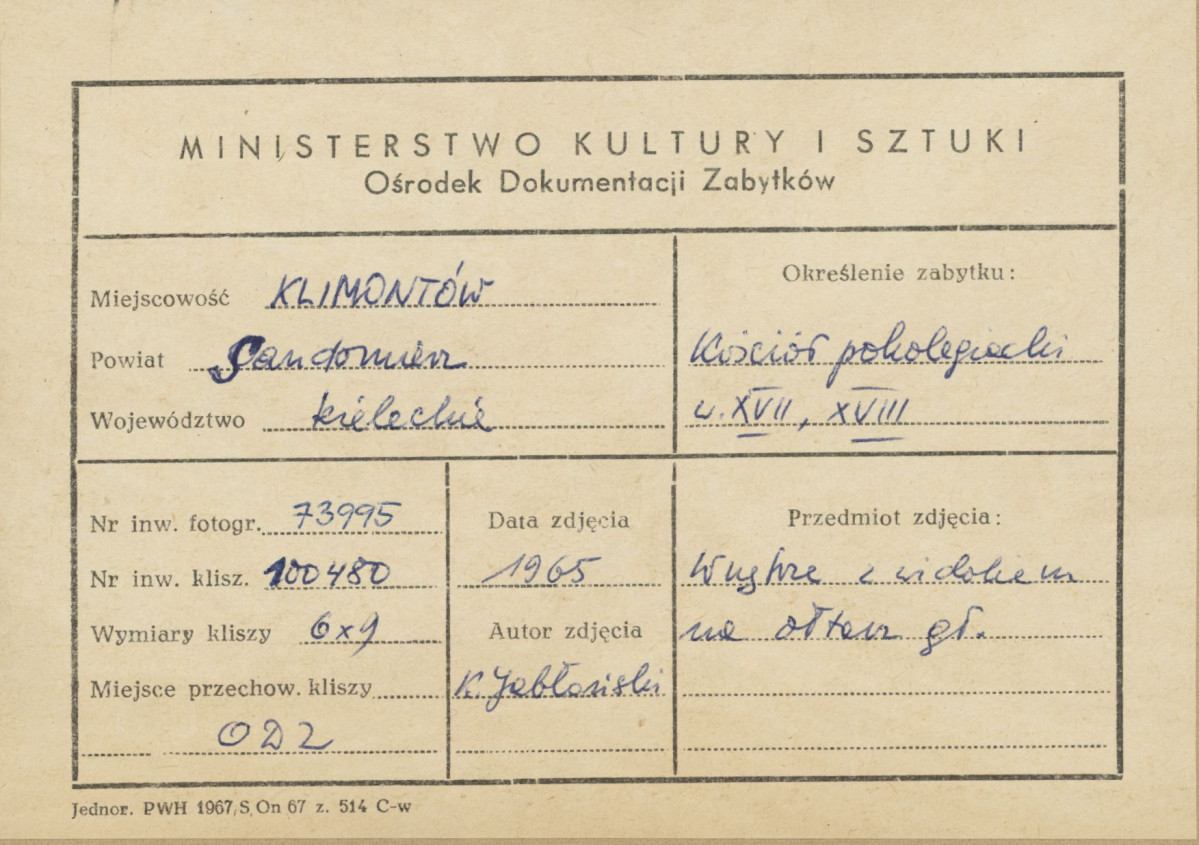 MINISTERSTWO KULTURY I SZTUKI
Ośrodek Dokumentacji Zabytków
Miejscowość KLIMONTÓW
Powiat Sandomierz
Województwo kieleckie
Określenie zabytku:
Kościół pokolegiacki
w. XVII, XVIII
Nr inw. fotogr. 73995
Nr inw. klisz. 100480
Wymiary kliszy 6x9
Miejsce przechow. kliszy
ODZ
Data zdjęcia
1965
Autor zdjęcia
K. Jabłoński
Przedmiot zdjęcia:
Wnętrze z widokiem
na ołtarz gł.
Jednor. PWH 1967 S. On 67 z. 514 C-w